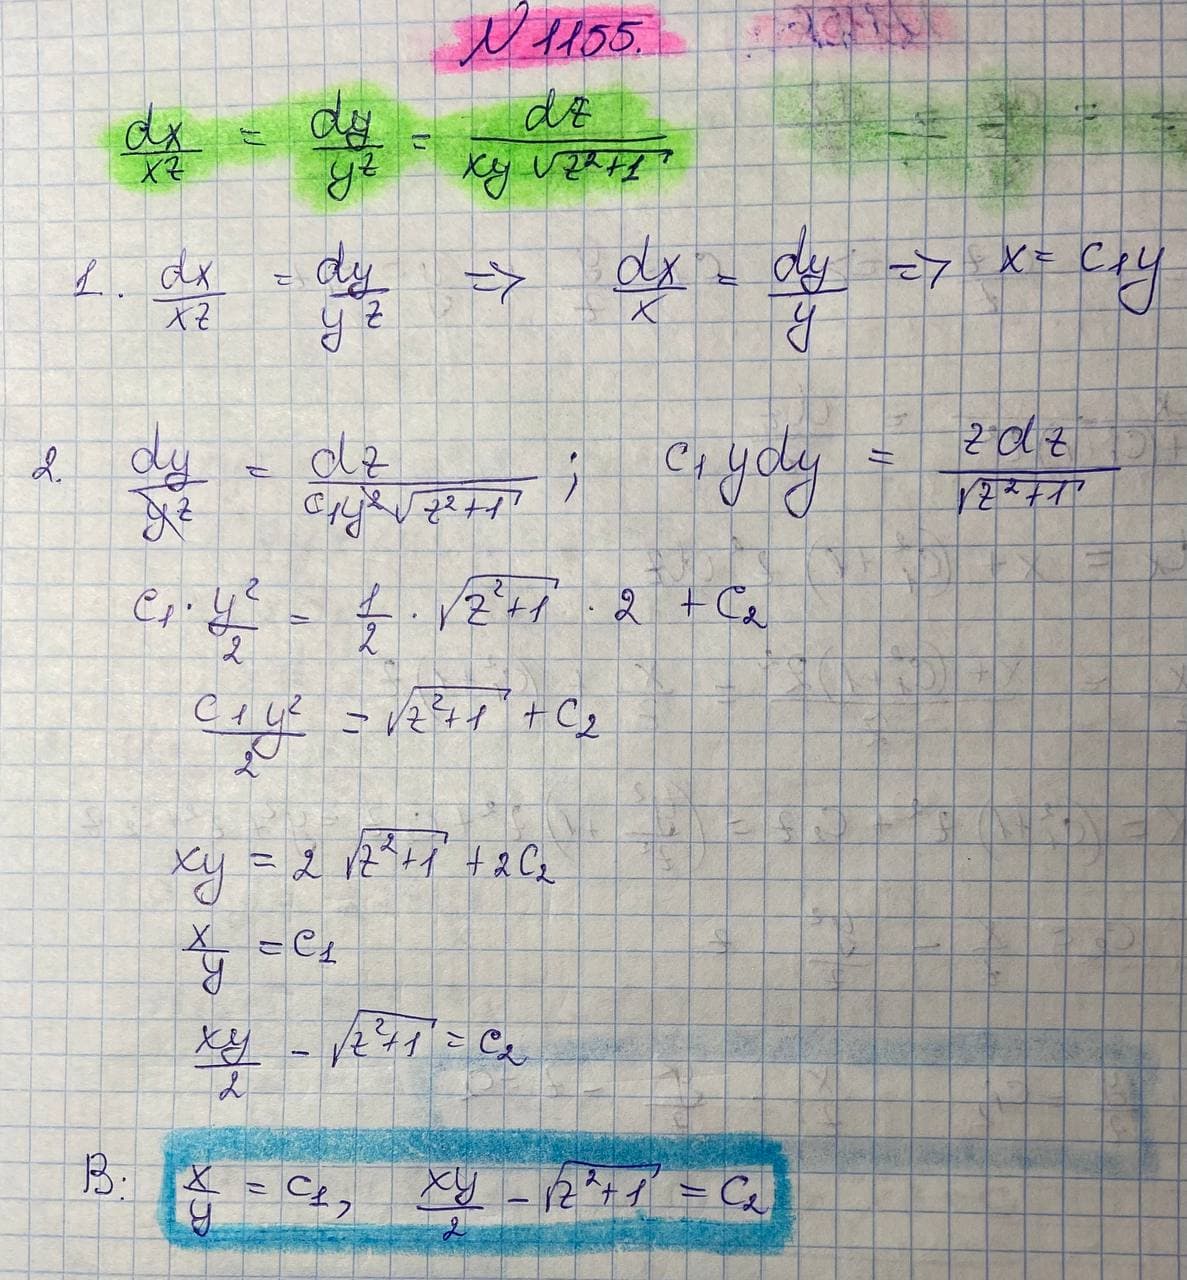 N 1155.
dx/xz = dy/yz = dz/(xy √(z²+1))
1. dx/xz = dy/yz => dx/x = dy/y => x = c₁y
2. dy/yz = dz/(c₁y²√(z²+1)) ; c₁ydy = zdz/√(z²+1)
c₁ · y²/2 = 1/2 · √(z²+1) · 2 + c₂
c₁y²/2 = √(z²+1) + c₂
xy = 2 √(z²+1) + 2c₂
x/y = c₁
xy/2 - √(z²+1) = c₂
B: x/y = c₁, xy/2 - √(z²+1) = c₂